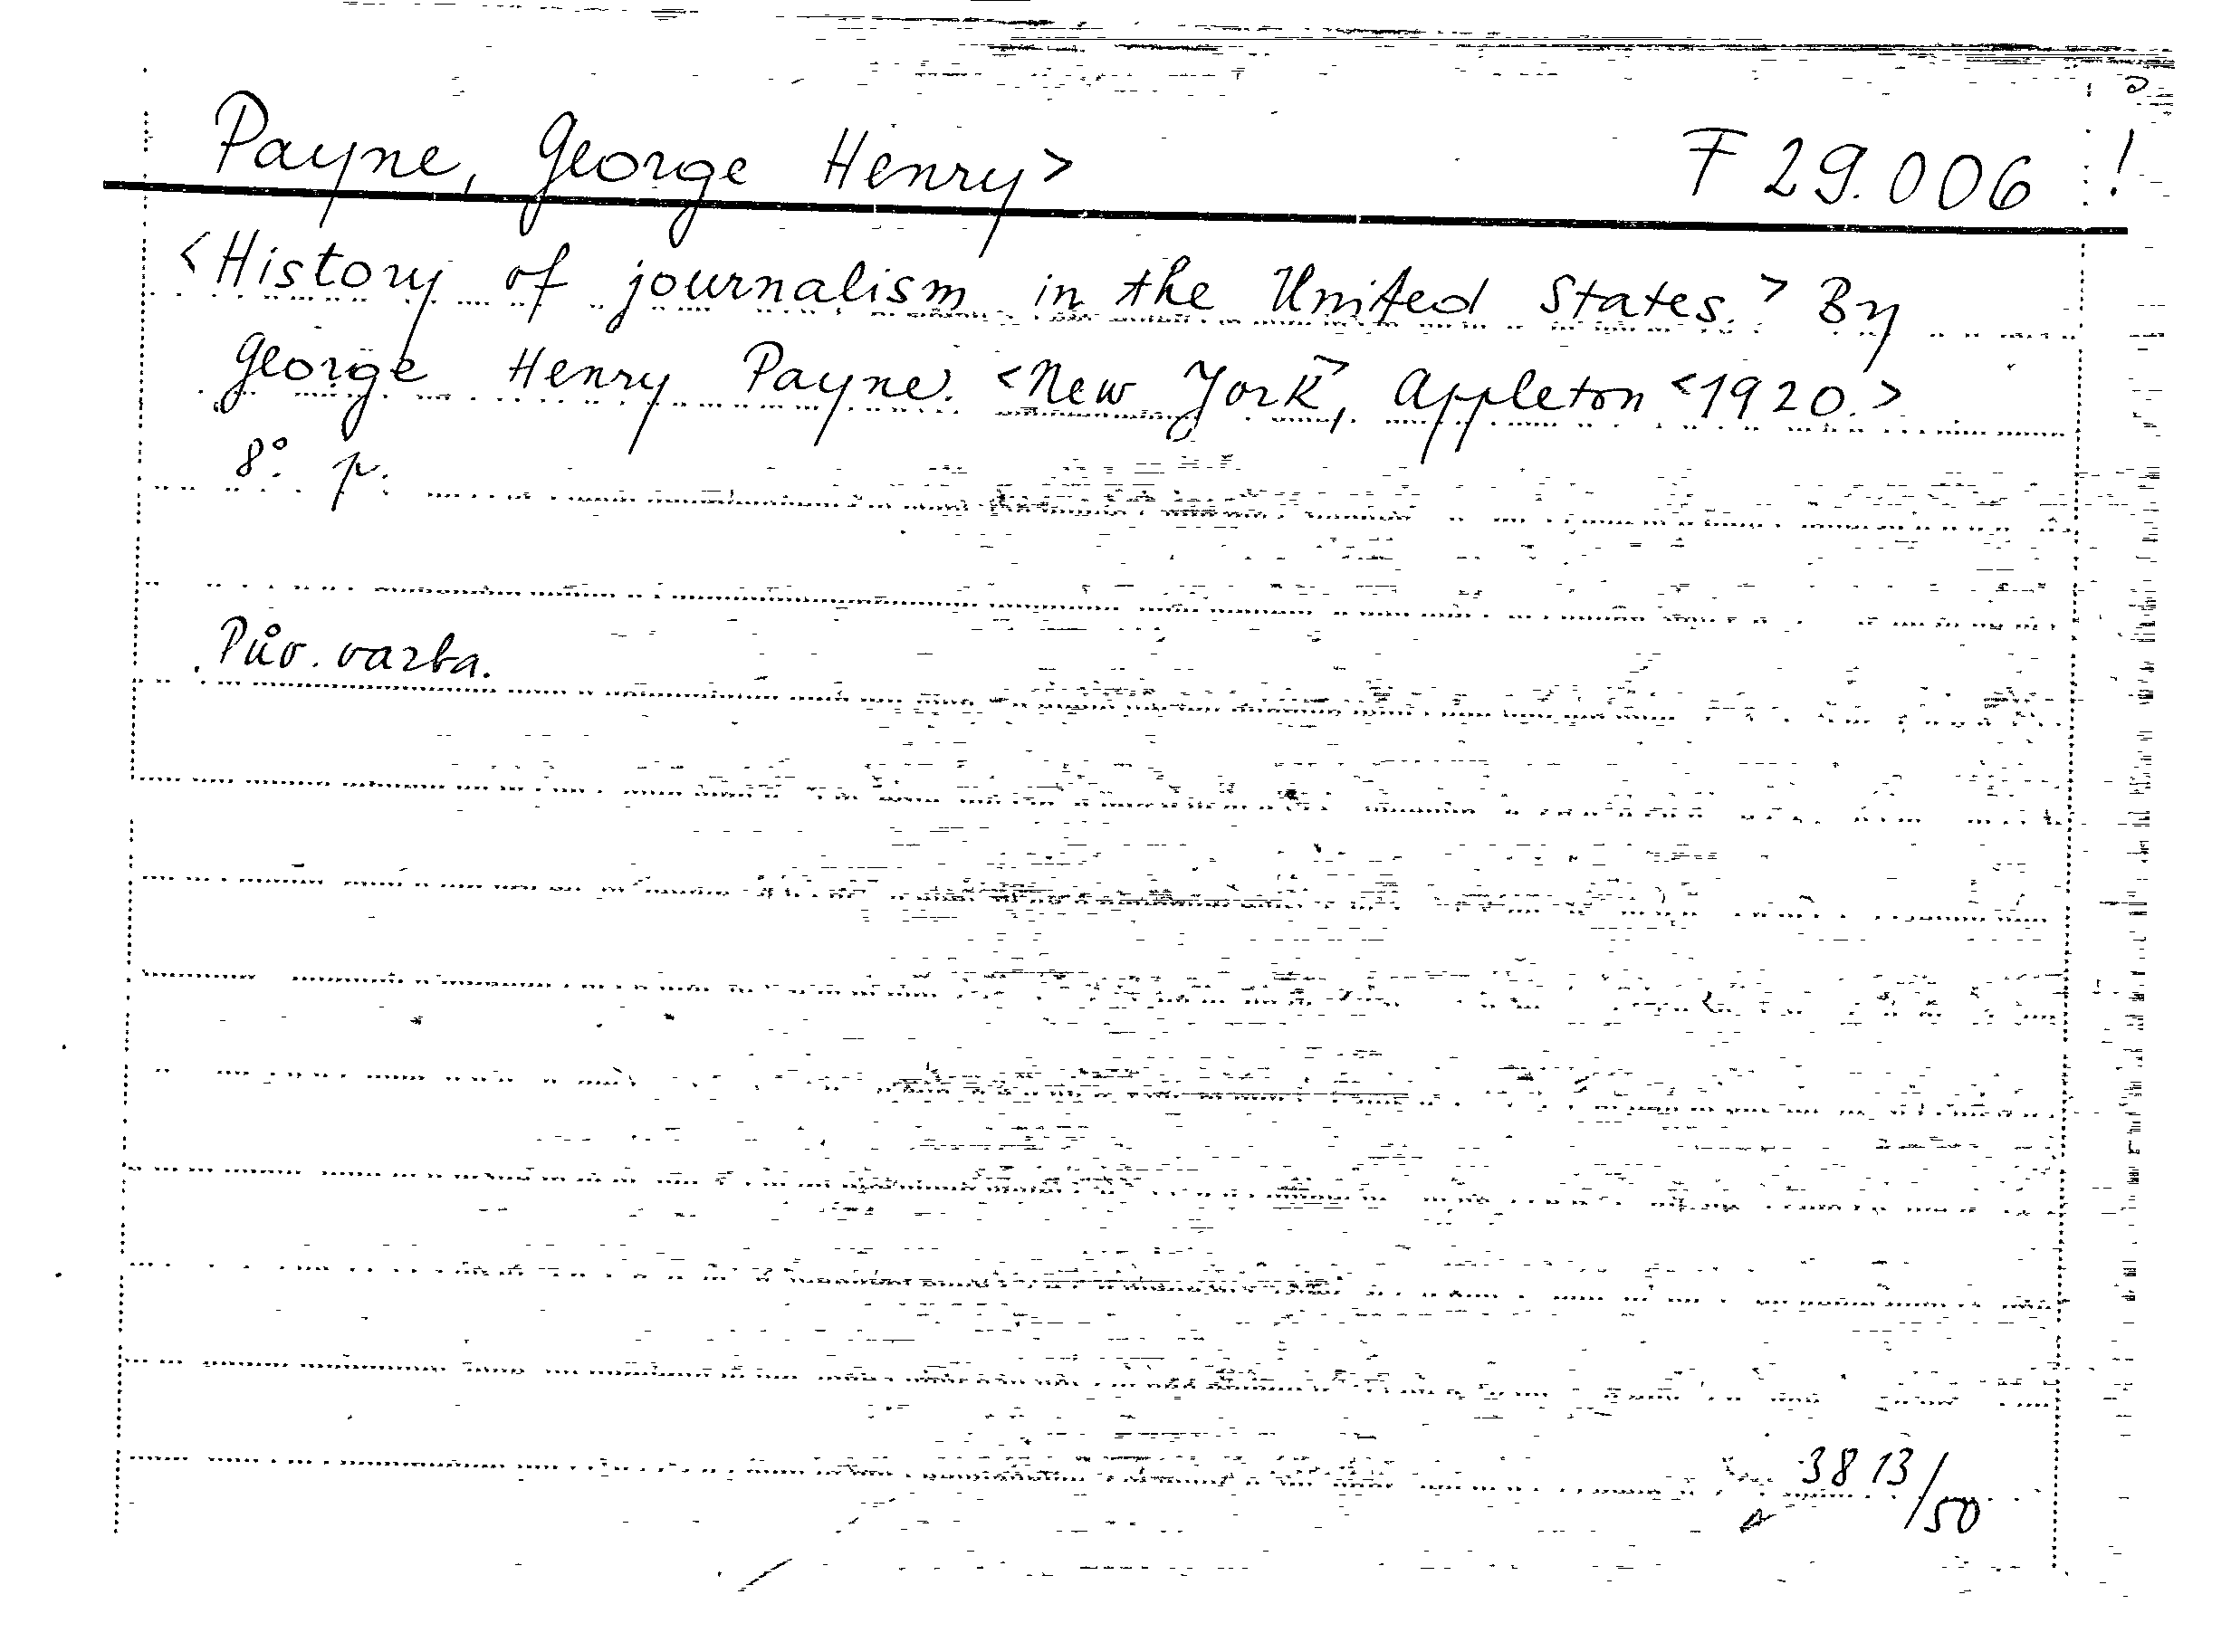 Payne, George Henry> F 29.006 !
<History of journalism in the United States.> By
George Henry Payne. <New York>, Appleton <1920.>
8°. p.
Pův. vazba.
3813/50